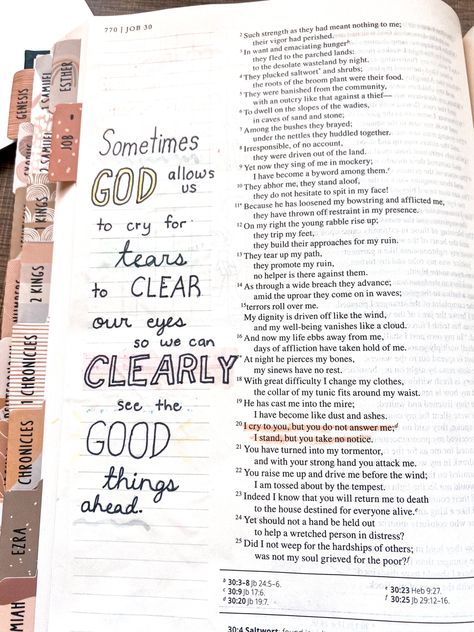 770 | JOB 30
GENESIS
SAMUEL
ESTHER
JOB
2 SAMUEL
KINGS
2 KINGS
1 CHRONICLES
CHRONICLES
EZRA
MIAH
Sometimes
GOD allows
us
to cry for
tears
to CLEAR
our eyes
so we can
CLEARLY
see the
GOOD
things
ahead.
2 Such strength as they had meant nothing to me;
their vigor had perished.
3 In want and emaciating hunger b
they fled to the parched lands:
to the desolate wasteland by night.
4 They plucked saltwort* and shrubs;
the roots of the broom plant were their food.
5 They were banished from the community,
with an outcry like that against a thief—
6 To dwell on the slopes of the wadies,
in caves of sand and stone;
7 Among the bushes they brayed;
under the nettles they huddled together.
8 Irresponsible, of no account,
they were driven out of the land.
9 Yet now they sing of me in mockery;
I have become a byword among them. c
10 They abhor me, they stand aloof,
they do not hesitate to spit in my face!
11* Because he has loosened my bowstring and afflicted me,
they have thrown off restraint in my presence.
12 On my right the young rabble rise up;
they trip my feet,
they build their approaches for my ruin.
13 They tear up my path,
they promote my ruin,
no helper is there against them.
14 As through a wide breach they advance;
amid the uproar they come on in waves;
15 terrors roll over me.
My dignity is driven off like the wind,
and my well-being vanishes like a cloud.
16 And now my life ebbs away from me,
days of affliction have taken hold of me.
17 At night he pierces my bones,
my sinews have no rest.
18 With great difficulty I change my clothes,
the collar of my tunic fits around my waist.
19 He has cast me into the mire;
I have become like dust and ashes.
20 I cry to you, but you do not answer me; d
I stand, but you take no notice.
21 You have turned into my tormentor,
and with your strong hand you attack me.
22 You raise me up and drive me before the wind;
I am tossed about by the tempest.
23 Indeed I know that you will return me to death
to the house destined for everyone alive. e
24 Yet should not a hand be held out
to help a wretched person in distress?
25 Did I not weep for the hardships of others;
was not my soul grieved for the poor? f
b 30:3–8 Jb 24:5–6.
c 30:9 Jb 17:6.
d 30:20 Jb 19:7.
e 30:23 Heb 9:27.
f 30:25 Jb 29:12–16.
30:4 Saltwort: